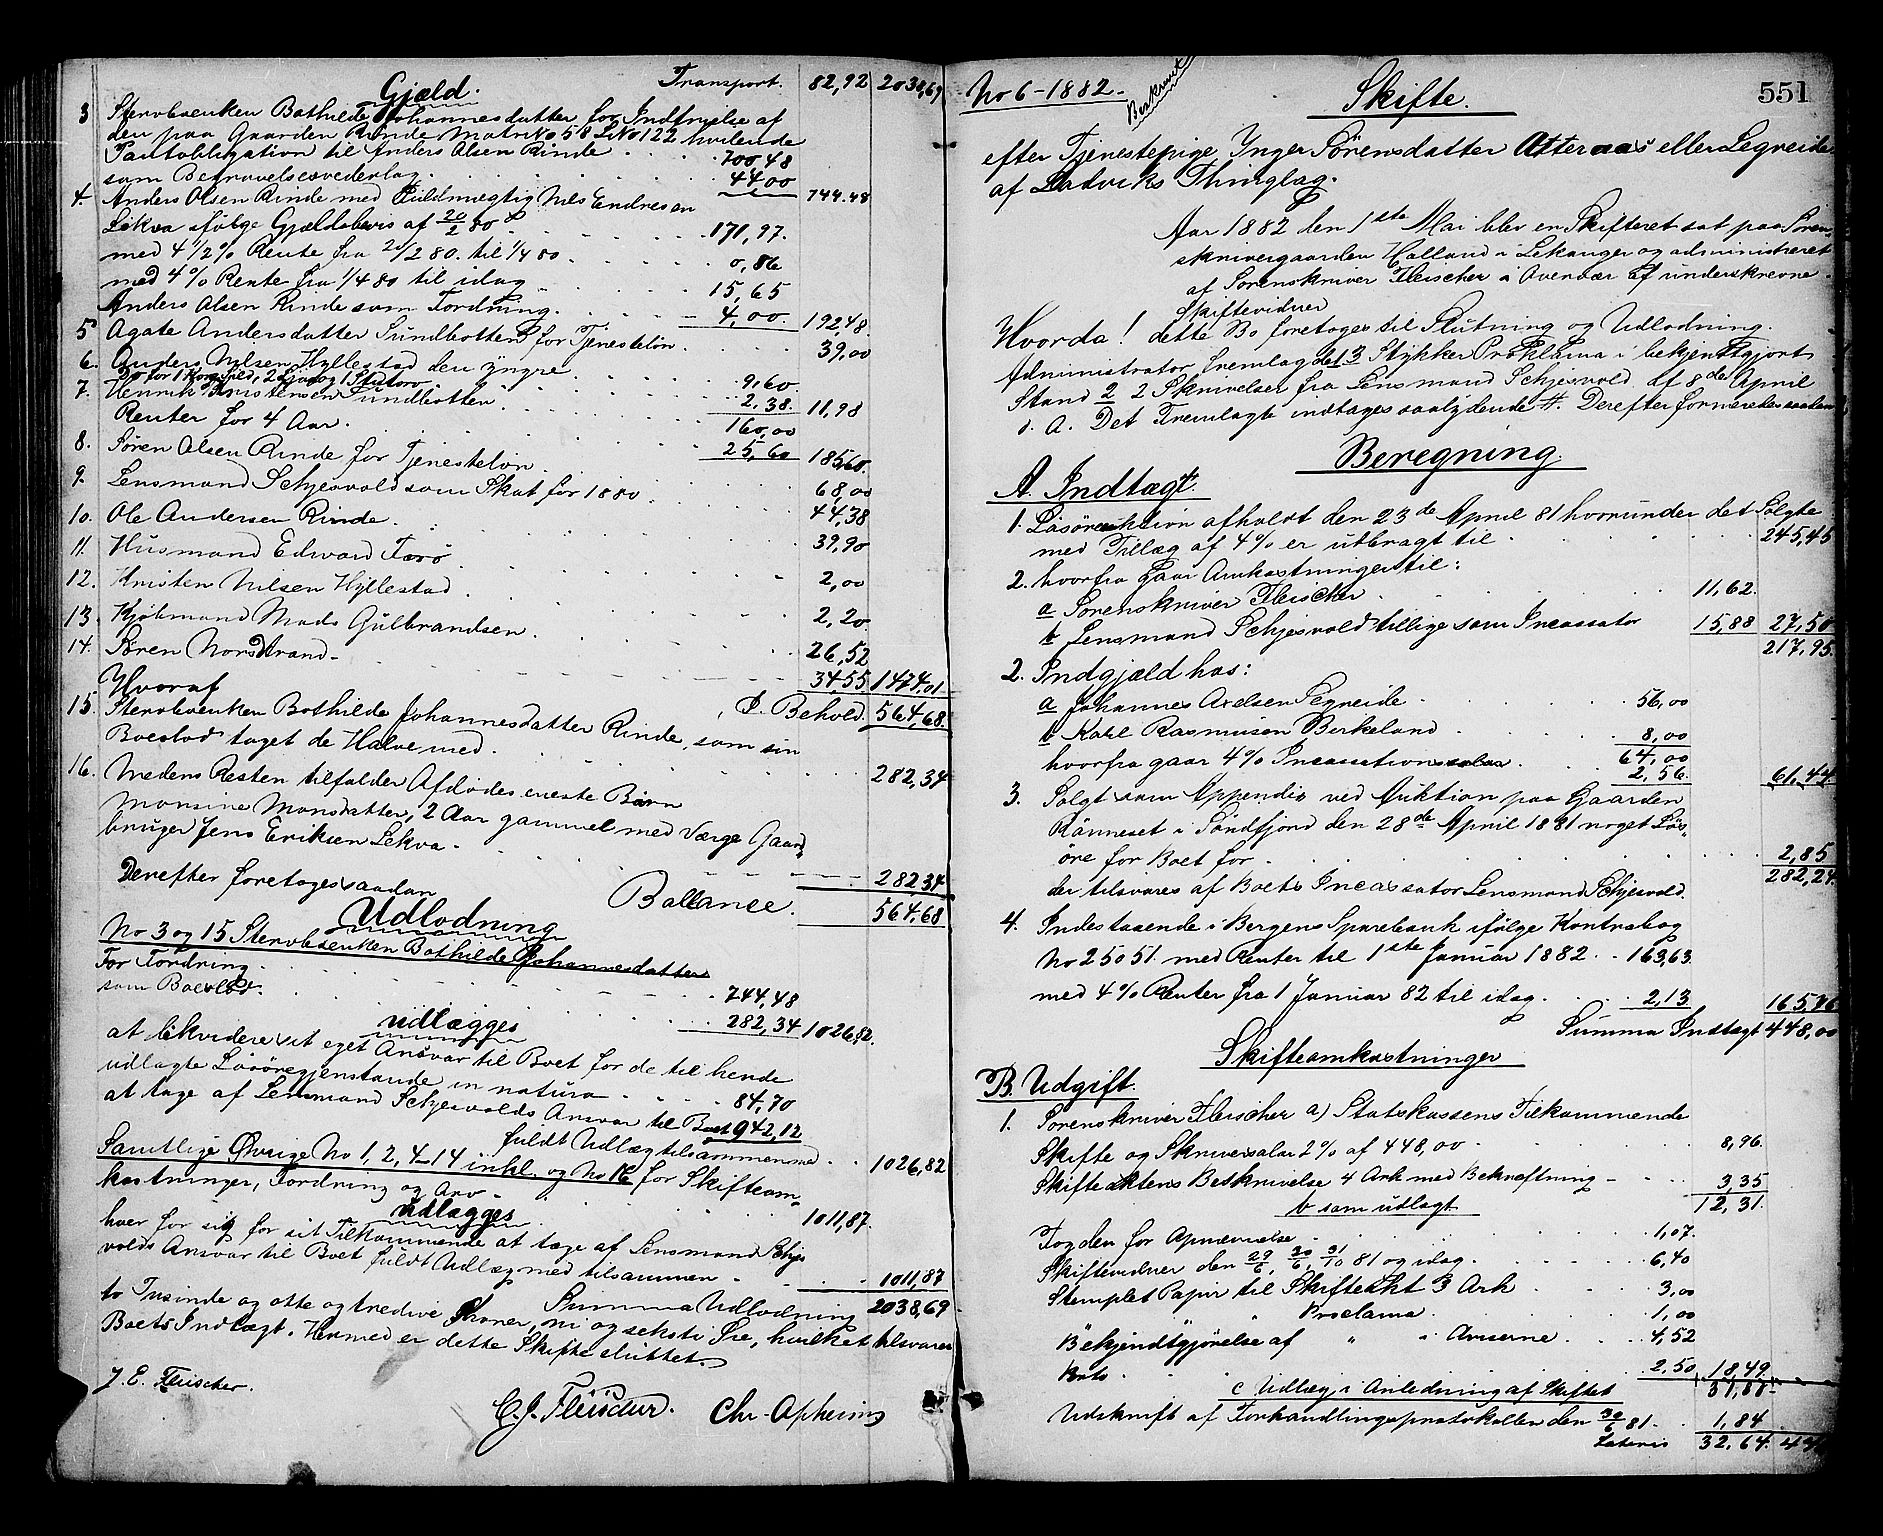 Gjæld.
Transport. 82,92 2038,69
3 Stervboenken Bothilde Johannesdatter for Indfrielse af
den paa Gaarden Rinde Matr No 58 L No 122 hvilende
Pantobligation til Anders Olsen Rinde . . . 700,48
som Begravelsesvederlag. . . . 44,00 744.48
4. Anders Olsen Rinde med Fuldmægtig Nils Endresen
Lekva ifølge Gjældsbevis af 20/2 80 . . . 171,97.
med 4 1/2 % Rente fra 20/2 80. til 1/4 80 . . . 0,86
med 4 % Rente fra 1/4 80 til idag . . . 15,65
Anders Olsen Rinde som Fordring. . . . 4,00. 192,48.
5 Agate Andersdatter Sundbotten for Tjenesteløn. . . 39,00
6. Anders Nilsen Hyllestad den yngre . . . 9,60
2,38. 11,98
7. Henrik Kristensen Sundbotten . . . 160,00
Renter for 4 Aar. . . . 25,60 185,60.
8. Søren Olsen Rinde for Tjenesteløn . . . 68,00
9. Lensmand Schjesvold som Skat for 1880 . . . 44,38
10. Ole Andersen Rinde. . . . 39,90
11. Husmand Edvard Farö . . . 2,00
12. Kristen Nilsen Hyllestad. . . . 2,20
13. Kjöbmand Mads Gulbrandsen. . . . 26,52
14. Søren Nordstrand . . . 34,55 1474,01
Hvoraf I Behold. 564,68.
15. Stervboenken Bothilde Johannesdatter Rinde, som sin
Boeslod taget de Halve med. . . . 282,34
16. Medens Resten tilfalder Afdødes eneste Barn
Monsine Monsdatter, 2 Aar gammel med Værge Gaard-
bruger Jens Eriksen Lekva. . . . 282,34
Ballance. 564,68
Derefter foretoges saadan
Udlodning
No 3 og 15 Stervboenken Bothilde Johannesdatter
For Fordring . . . 744,48
som Boeslod. . . . 282,34 1026,82.
udlægges
at likvidere sit eget Ansvar til Boet for de til hende
udlagte Løsøregjenstande in natura . . . 84,70
at tage af Lensmand Schjesvolds Ansvar til Boet 942,12
fuldt Udlæg tilsammen med . . 1026,82
Samtlige Øvrige No 1, 2, 4-14 inkl. og No 16 for Skifteom-
kostninger, Fordring og Arv . . . 1011,87.
udlægges
hver for sig for sit Tilkommende at tage af Lensmand Schjes
volds Ansvar til Boet fuldt Udlæg med tilsammen . . . 1011,87
Summa Udlodning 2038,69.
to Tusinde og otte og tredive Kroner, ni og seksti Öre, hvilket tilsvarer
Boets Indtægt. Hermed er dette Skifte sluttet.
J. E. Fleischer.
C. J. Fleischer.
Chr. Opheim
No 6-1882.
Beskrevet
Skifte.
551
efter Tjenestepige Ynger Sørensdatter Atteraas eller Legreide
af Ladviks Thinglag.
Aar 1882 den 1ste Mai blev en Skifteret sat paa Soren-
skrivergaarden Halland i Lekanger og administreret
af Sorenskriver Fleischer i Overvær af underskrevne
Skiftevidner
Hvorda! dette Bo foretoges til Slutning og Udlodning.
Administrator fremlagde 13 Stykker Proklama i bekjentgjort
Stand 2 2 Skrivelser fra Lensmand Schjesvold af 8de April
d. A. Det Fremlagte indtages saalydende #. Derefter forneretes saadan
Beregning.
A. Indtægt.
1. Løsöreauktion afholdt den 23de April 81 hvorunder det Solgte
med Tillæg af 4 % er utbragt til . . . 245,45
2. hvorfra gaar Omkostninger til:
a Sorenskriver Fleischer . . . 11,62.
b Lensmand Schjesvold tillige som Incassator 15,88 27,50
217,95.
2. Indgjæld hos:
a Johannes Axelsen Legreide . . . 56,00
b Karl Rasmusen Berkeland . . . 8,00
64,00
hvorfra gaar 4 % Incassationssalar . . 2,56. 61,44
3. Solgt som Appendix ved Auktion paa Gaarden
Rönneset i Söndfjord den 28de April 1881 noget Løs-
öre for Boet for . . . 2,85
282,24.
der tilsvares af Boets Incassator Lensmand Schjesvold.
4. Indestaaende i Bergens Sparebank ifølge Kontrabog
No 25051. med Renter til 1ste Januar 1882 . . 163,63.
med 4 % Renter fra 1 Januar 82 til idag. . . 2,13 165,76
Summa Indtægt 448,00
Skifteomkostninger
B. Udgift.
1. Sorenskriver Fleischer a) Statskassens Tilkommende
Skifte og Skriversalar 2 % af 448,00 . . . 8,96.
Skifteaktens Beskrivelse 4 Ark med Bekræftning . . . 3,35
12,31.
b som udlagt
Fogden for Opnævnelse . . . 1,07.
Skiftevidner den 29/6, 30/6, 31/10 81 og idag. . . . 6,40
Stemplet Papir til Skifteakt 3 Ark . . . 3,00
" Proclama . . . 1,00
Bekjendtgjörelse af " i Aviserne . . . 4,52
Porto . . . 2,50 18,49.
c Udlæg i Anledning af Skiftet
Udskrift af Forhandlingsprotokollen den 30/6 81. . . 1,84
Lateris 32,64.